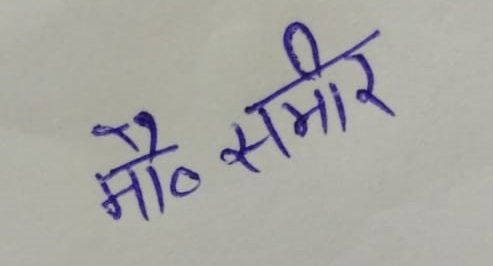 मौ० समीर